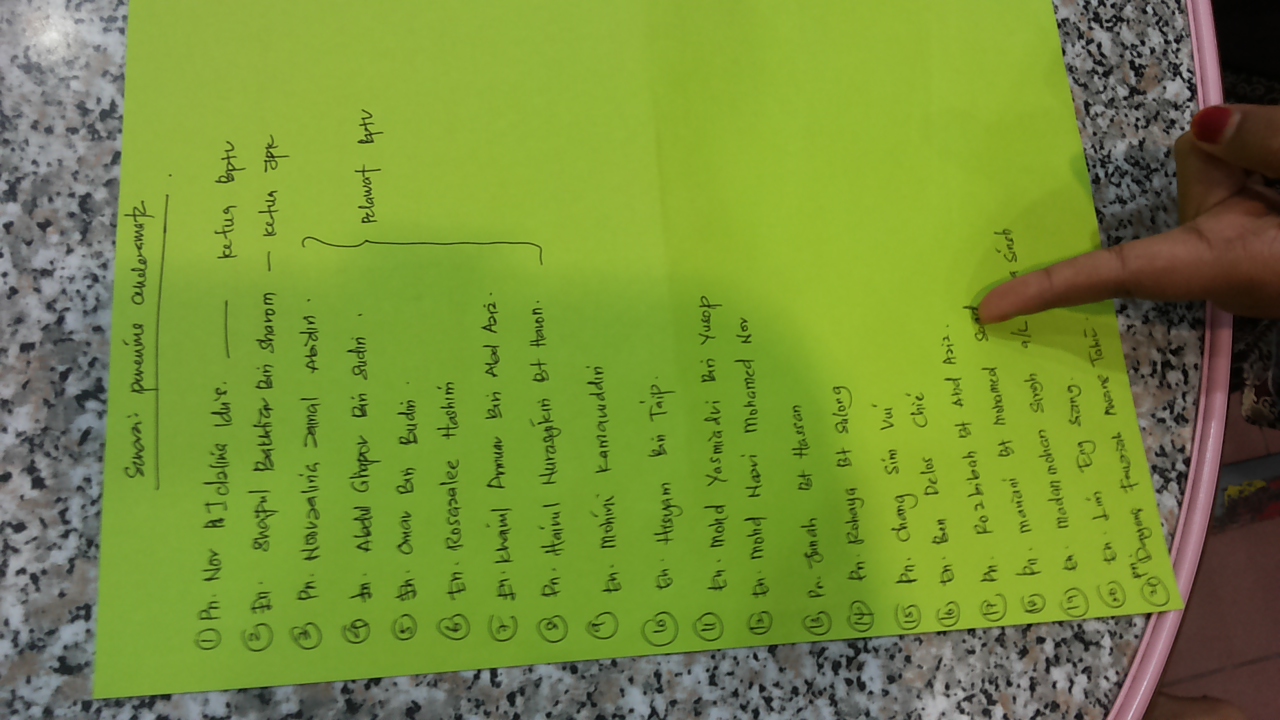 Senarai penerima cenderamata.
① Pn. Nor Aidalina Idris. — ketua Bptv
② En. Shaful Bakhtiar Bin Sharom — ketua JPK
③ Pn. Norzalria Jamal Abidin.
④ En. Abdul Ghapor Bin Sudin.
⑤ En. Omar Bin Budin.
⑥ En. Rosazalee Hashim
⑦ En Khairul Annuar Bin Abd Aziz.
⑧ Pn. Hairul Nurasyikin Bt Haron.
Pelawat Bptv
⑨ En. Mohini Kamarudin
⑩ En. Hisyam Bin Taip.
⑪ En. Mohd Yasmiadri Bin Yusop
⑫ En. Mohd Nazri Mohamed Nor
⑬ Pn. Junah Bt Hassan
⑭ Pn. Rohaya Bt Sulong
⑮ Pn. Chang Sim Vui
⑯ En. Ben Delos Chie
⑰ Pn. Rozbibah Bt Abd Aziz.
⑱ Pn. Mariani Bt Mohamed
⑲ En Madanmohan Singh a/L Singh
⑳ En. Lim Eg Seng.
㉑ Dayang Fauziah Tahir.